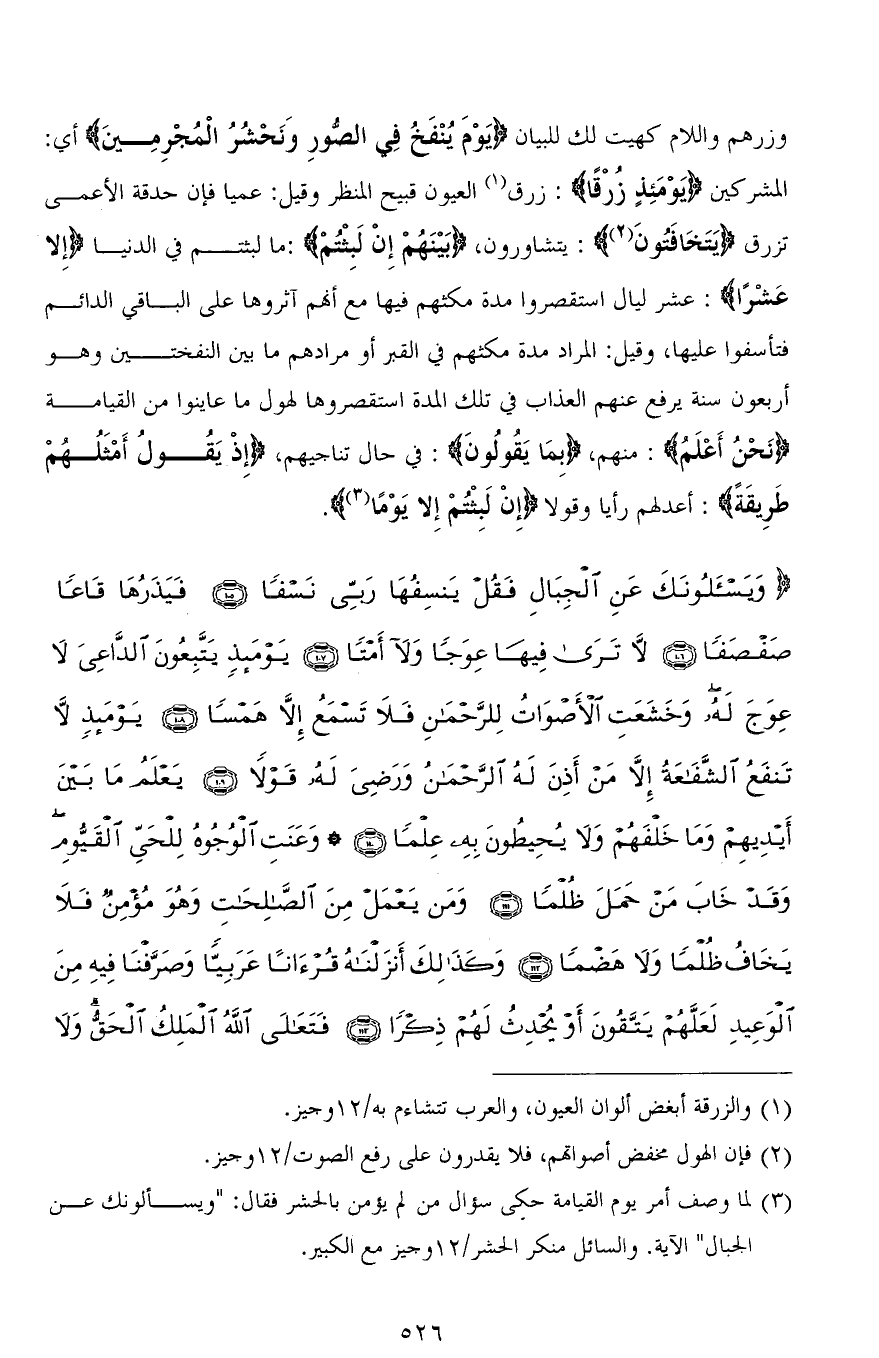 وزرهم واللام كهيت لك للبيان ﴿يَوْمَ يُنْفَخُ فِي الصُّورِ وَنَحْشُرُ الْمُجْرِمِينَ﴾ أي:
المشركين ﴿يَوْمَئِذٍ زُرْقًا﴾ : زرق(١) العيون قبيح المنظر وقيل: عميا فإن حدقة الأعمى
تزرق ﴿يَتَخَافَتُونَ(٢)﴾ : يتشاورون، ﴿بَيْنَهُمْ إِنْ لَبِثْتُمْ﴾ :ما لبثتم في الدنيا ﴿إِلا
عَشْرًا﴾ : عشر ليال استقصروا مدة مكثهم فيها مع أنهم آثروها على الباقي الدائم
فتأسفوا عليها، وقيل: المراد مدة مكثهم في القبر أو مرادهم ما بين النفختين وهو
أربعون سنة يرفع عنهم العذاب في تلك المدة استقصروها لهول ما عاينوا من القيامة
﴿نَحْنُ أَعْلَمُ﴾ : منهم، ﴿بِمَا يَقُولُونَ﴾ : في حال تناجيهم، ﴿إِذْ يَقُولُ أَمْثَلُهُمْ
طَرِيقَةً﴾ : أعدلهم رأيا وقولا ﴿إِنْ لَبِثْتُمْ إِلا يَوْمًا(٣)﴾.
﴿ وَيَسْـَٔلُونَكَ عَنِ ٱلْجِبَالِ فَقُلْ يَنسِفُهَا رَبِّى نَسْفًا ١٠٥ فَيَذَرُهَا قَاعًا
صَفْصَفًا ١٠٦ لَّا تَرَىٰ فِيهَا عِوَجًا وَلَآ أَمْتًا ١٠٧ يَوْمَئِذٍ يَتَّبِعُونَ ٱلدَّاعِىَ لَا
عِوَجَ لَهُۥۖ وَخَشَعَتِ ٱلْأَصْوَاتُ لِلرَّحْمَٰنِ فَلَا تَسْمَعُ إِلَّا هَمْسًا ١٠٨ يَوْمَئِذٍ لَّا
تَنفَعُ ٱلشَّفَٰعَةُ إِلَّا مَنْ أَذِنَ لَهُ ٱلرَّحْمَٰنُ وَرَضِىَ لَهُۥ قَوْلًا ١٠٩ يَعْلَمُ مَا بَيْنَ
أَيْدِيهِمْ وَمَا خَلْفَهُمْ وَلَا يُحِيطُونَ بِهِۦ عِلْمًا ١١٠ * وَعَنَتِ ٱلْوُجُوهُ لِلْحَىِّ ٱلْقَيُّومِۖ
وَقَدْ خَابَ مَنْ حَمَلَ ظُلْمًا ١١١ وَمَن يَعْمَلْ مِنَ ٱلصَّٰلِحَٰتِ وَهُوَ مُؤْمِنٌ فَلَا
يَخَافُ ظُلْمًا وَلَا هَضْمًا ١١٢ وَكَذَٰلِكَ أَنزَلْنَٰهُ قُرْءَانًا عَرَبِيًّا وَصَرَّفْنَا فِيهِ مِنَ
ٱلْوَعِيدِ لَعَلَّهُمْ يَتَّقُونَ أَوْ يُحْدِثُ لَهُمْ ذِكْرًا ١١٣ فَتَعَٰلَى ٱللَّهُ ٱلْمَلِكُ ٱلْحَقُّۗ وَلَا
(١) والزرقة أبغض ألوان العيون، والعرب تتشاءم به/١٢وجيز.
(٢) فإن الهول مخفض أصواتهم، فلا يقدرون على رفع الصوت/١٢وجيز.
(٣) لما وصف أمر يوم القيامة حكى سؤال من لم يؤمن بالحشر فقال: "ويسألونك عن
الجبال" الآية. والسائل منكر الحشر/١٢وجيز مع الكبير.
٥٢٦